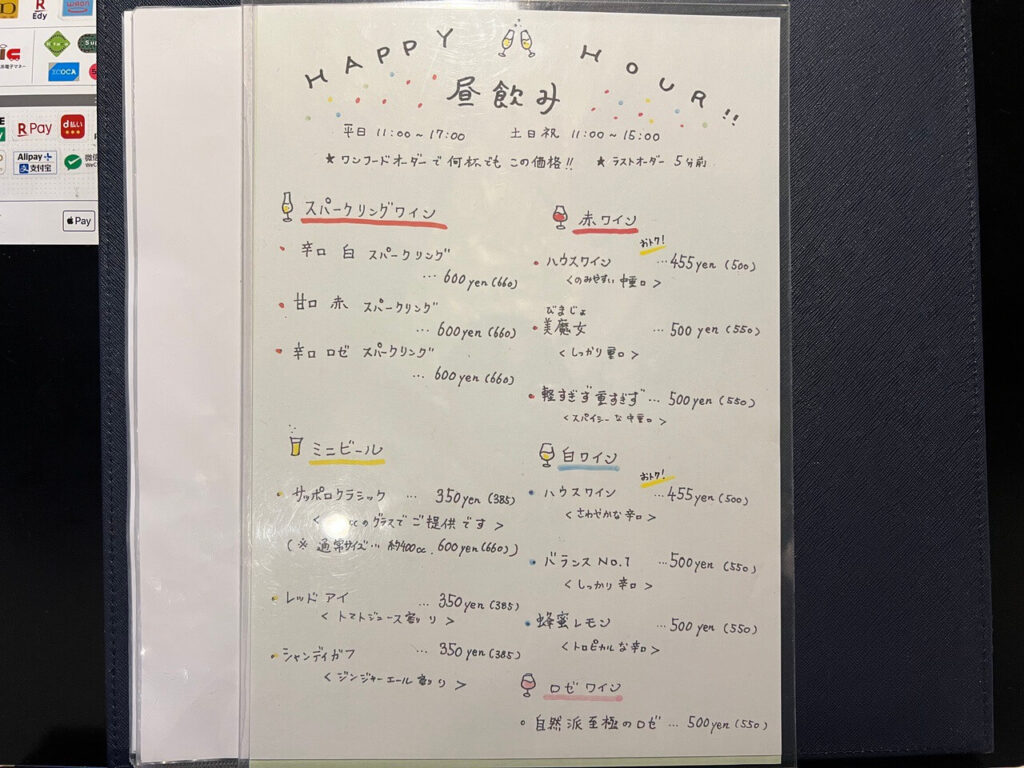 Edy
XCOCA
R Pay
d払い
Alipay
支付宝
Pay
HAPPY HOUR!!
昼飲み
平日 11:00～17:00 土日祝 11:00～15:00
★ワンフードオーダーで何杯でもこの価格!! ★ラストオーダー 5分前
スパークリングワイン
• 辛口 白 スパークリング
… 600yen(660)
• 甘口 赤 スパークリング
… 600yen(660)
• 辛口 ロゼ スパークリング
… 600yen(660)
ミニビール
• サッポロクラシック … 350yen(385)
ccのグラスでご提供です >
(※ 通常サイズ… 約400cc. 600yen(660))
• レッドアイ … 350yen(385)
< トマトジュース割り >
• シャンディガフ … 350yen(385)
< ジンジャーエール割り >
赤ワイン
おトク!
• ハウスワイン …455yen(500)
<のみやすい 中重口>
びまじょ
• 美魔女 …500yen(550)
<しっかり重口>
• 軽すぎず重すぎず…500yen(550)
<スパイシーな中重口>
白ワイン
おトク!
• ハウスワイン …455yen(500)
<さわやかな辛口>
• バランスNo.1 …500yen(550)
<しっかり辛口>
• 蜂蜜レモン …500yen(550)
<トロピカルな辛口>
ロゼワイン
• 自然派至極のロゼ … 500yen(550)